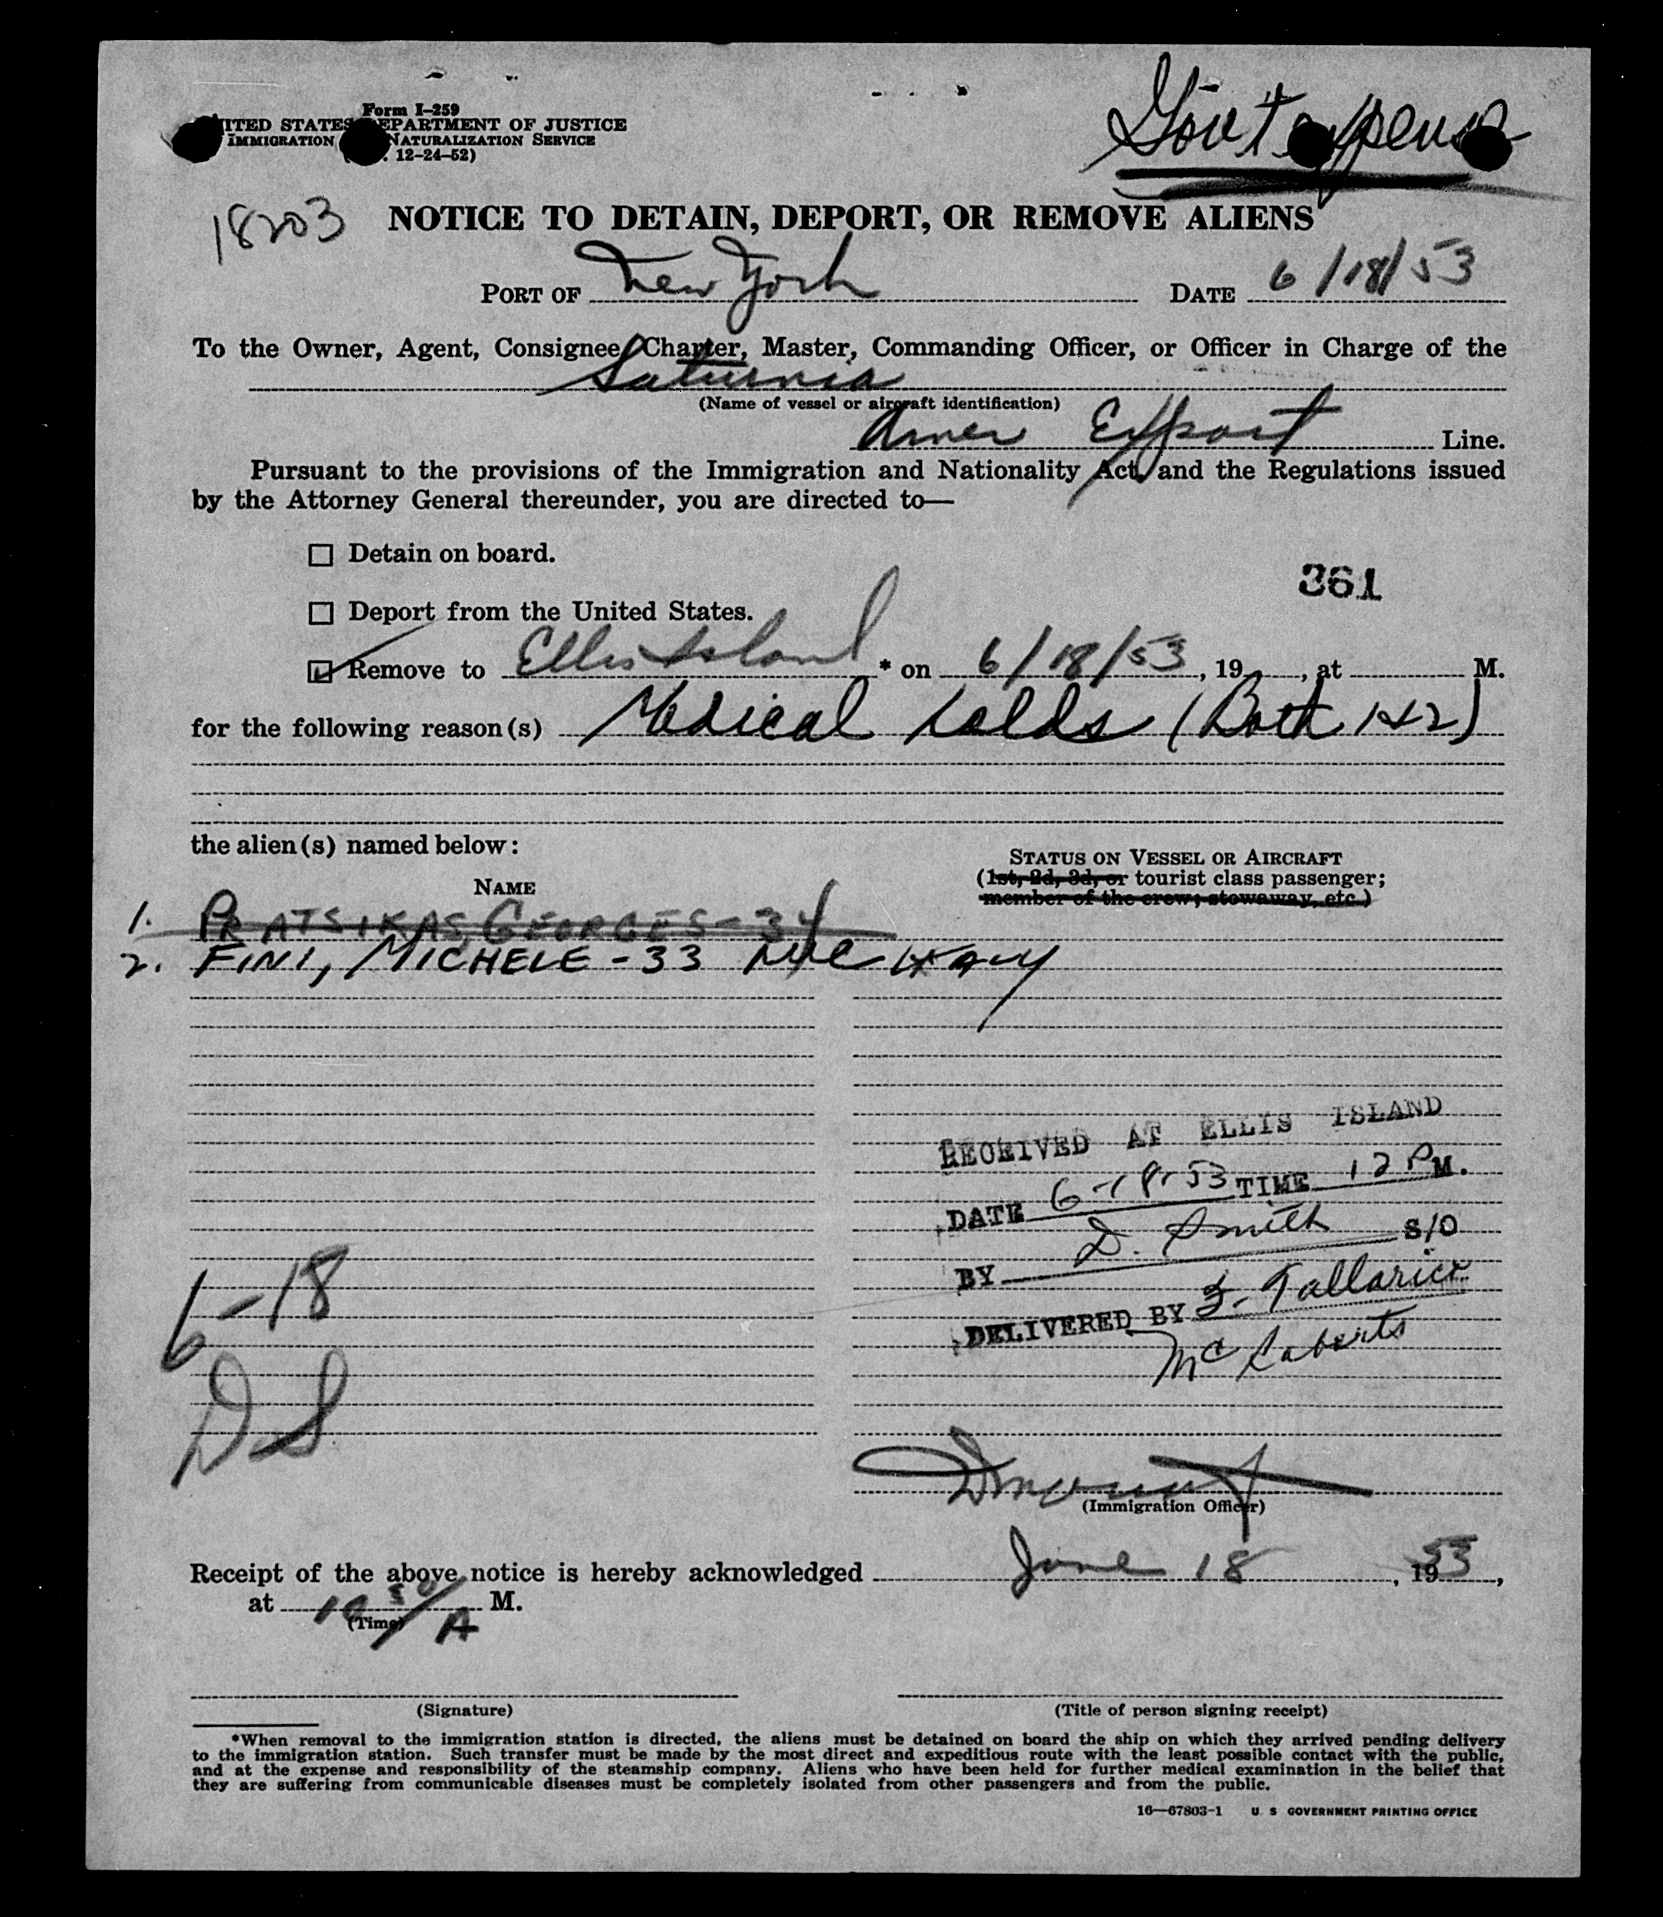 Form I-259
UNITED STATES DEPARTMENT OF JUSTICE
IMMIGRATION NATURALIZATION SERVICE
12-24-52)
Gov't Expense
18203
NOTICE TO DETAIN, DEPORT, OR REMOVE ALIENS
PORT OF New York DATE 6/18/53
To the Owner, Agent, Consignee, Charter, Master, Commanding Officer, or Officer in Charge of the
Saturnia
(Name of vessel or aircraft identification)
Amer Export Line.
Pursuant to the provisions of the Immigration and Nationality Act, and the Regulations issued
by the Attorney General thereunder, you are directed to—
Detain on board.
361
Deport from the United States.
Remove to Ellis Island * on 6/18/53, 19, at M.
for the following reason(s) Medical Holds (Both 1+2)
the alien(s) named below:
STATUS ON VESSEL OR AIRCRAFT
(1st, 2d, 3d, or tourist class passenger;
NAME
member of the crew; stowaway, etc.)
1. PRATSIKAS, GEORGES - 34
2. FINI, MICHELE - 33 Italy
RECEIVED AT ELLIS ISLAND
DATE 6-18-53 TIME 12 P M.
BY D. Smith S/O
DELIVERED BY F. Tallarico
McRoberts
6-18
DS
(Immigration Officer)
Receipt of the above notice is hereby acknowledged June 18, 1953,
at 10 30/A M.
(Time)
(Signature) (Title of person signing receipt)
*When removal to the immigration station is directed, the aliens must be detained on board the ship on which they arrived pending delivery
to the immigration station. Such transfer must be made by the most direct and expeditious route with the least possible contact with the public,
and at the expense and responsibility of the steamship company. Aliens who have been held for further medical examination in the belief that
they are suffering from communicable diseases must be completely isolated from other passengers and from the public.
16—67803-1 U. S GOVERNMENT PRINTING OFFICE